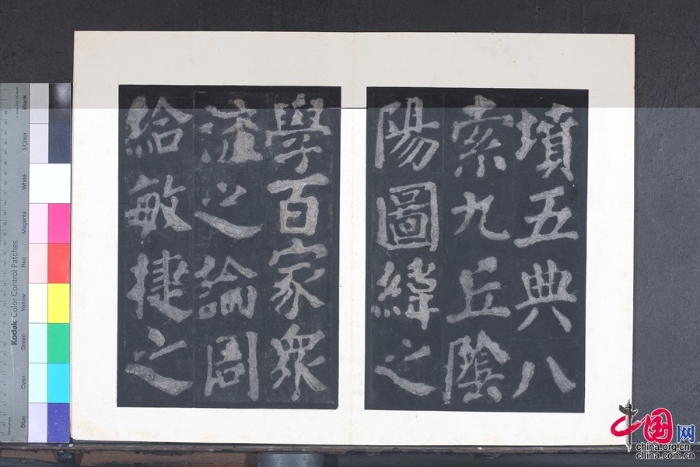 墳五典八
索九丘陰
陽圖緯之
學百家衆
流之論周
給敏捷之
Kodak Color Control Patches
Blue
Cyan
Green
Yellow
Red
Magenta
White
3/Color
Black
中国网
china.org.cn
china.com.cn